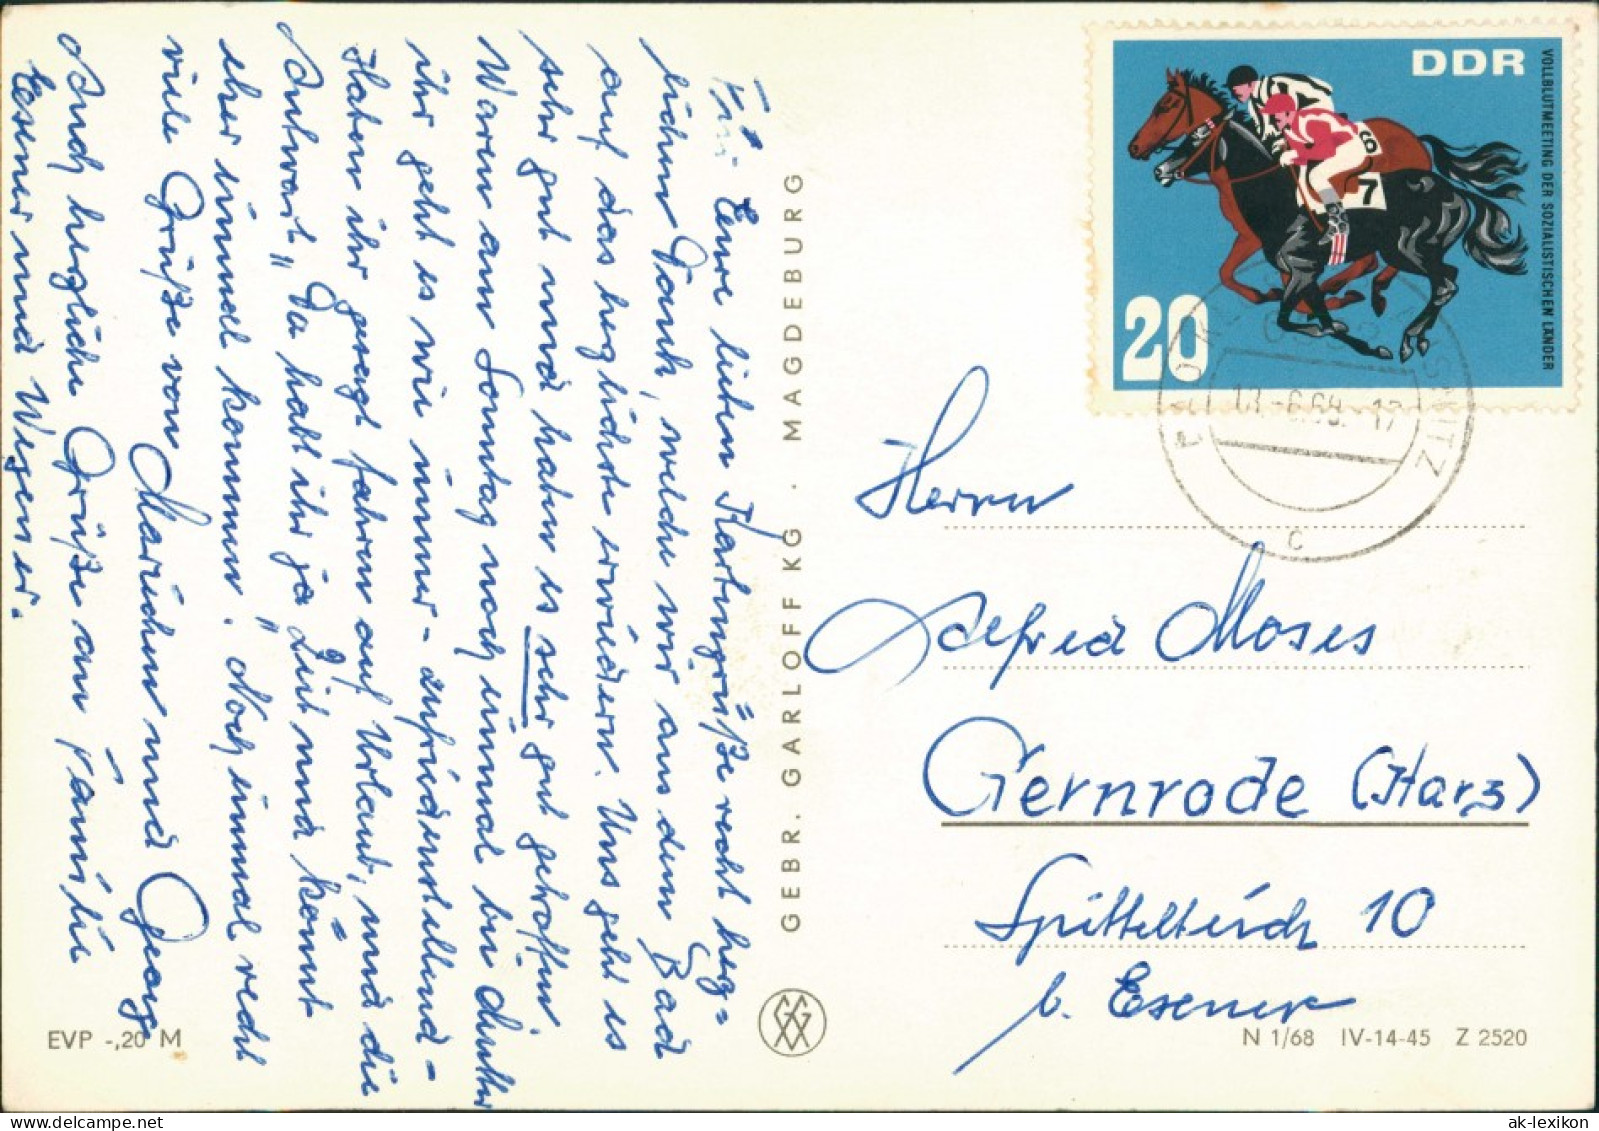 Für Eure lieben Kartengrüße recht herz=
lichen Dank, welche wir aus dem Bad
auf das herzlichste erwiedern. Uns geht es
sehr gut und haben es sehr gut getroffen
Waren am Sonntag noch einmal bei
ihr geht es wie immer - zufriedenstellend -
Haben ihr gesagt fahren auf Urlaub, und die
Antwort „Da habt ihr ja Zeit und könnt
eher einmal kommen." Noch einmal recht
viele Grüße von Mariechen und Georg
Auch herzliche Grüße an Familie
Eesener und Wesener.
GEBR. GARLOFF KG. MAGDEBURG
EVP -,20 M
DDR
VOLLBLUTMEETING DER SOZIALISTISCHEN LÄNDER
6
7
20
c
Herrn
Alfred Moses
Gernrode (Harz)
Spittelteich 10
b. Esener
N 1/68 IV-14-45 Z 2520
ak-lexikon